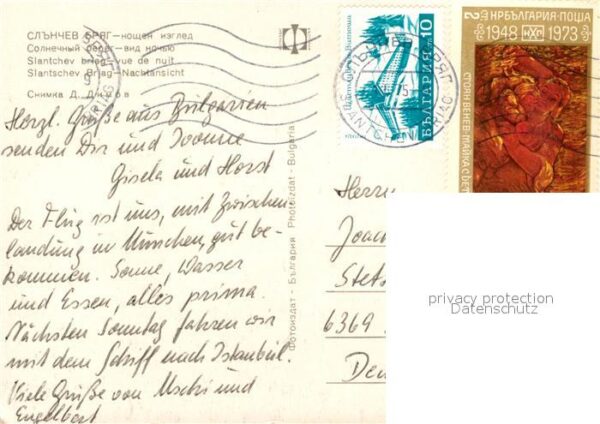 СЛЪНЧЕВ БРЯГ—нощен изглед
Солнечный берег—вид ночью
Slantchev briag—vue de nuit
Slantschev Briag—Nachtansicht
Снимка Д. Дилов
Herzl. Grüße aus Bulgarien
senden Dir und Ivonne
Gisela und Horst
Der Flug ist uns, mit Zwischen-
landung in München, gut be-
kommen. Sonne, Wasser
und Essen, alles prima.
Nächsten Sonntag fahren wir
mit dem Schiff nach Istanbul.
Viele Grüße von Uschi und
Engelbert
Фотоиздат - България Photoizdat - Bulgaria
10
БЪЛГАРИЯ
2
НР БЪЛГАРИЯ·ПОЩА
1948 1973
СТОЯН ВЕНЕВ·МАЙКА С ДЕТЕ
Herrn
Joac
Stets
6369
Deu
privacy protection
Datenschutz